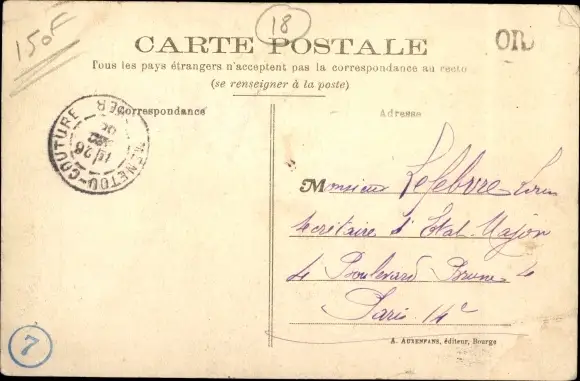 150F
18
OR
CARTE POSTALE
Tous les pays étrangers n'acceptent pas la correspondance au recto
(se renseigner à la poste)
Correspondance
Adresse
MENETOU-COUTURE
CHER
26
Monsieur Lefebvre Louis
Secrétaire d'État Major
4 Boulevard Brune 4
Paris 14e
A. AUXENFANS, éditeur, Bourges
7